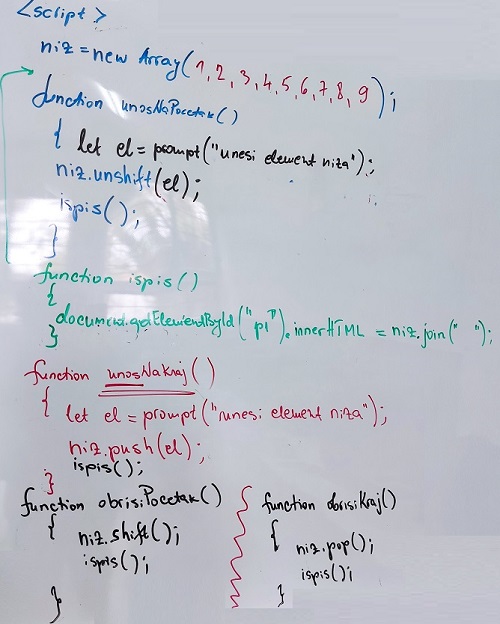 <script>
niz = new Array(1, 2, 3, 4, 5, 6, 7, 8, 9);
function unosNaPocetak()
{ let el = prompt("unesi element niza");
niz.unshift(el);
ispis();
}
function ispis()
{
document.getElementById("p1").innerHTML = niz.join(" ");
}
function unosNaKraj()
{ let el = prompt("unesi element niza");
niz.push(el);
ispis();
}
function obrisiPocetak()
{ niz.shift();
ispis();
}
function obrisiKraj()
{
niz.pop();
ispis();
}